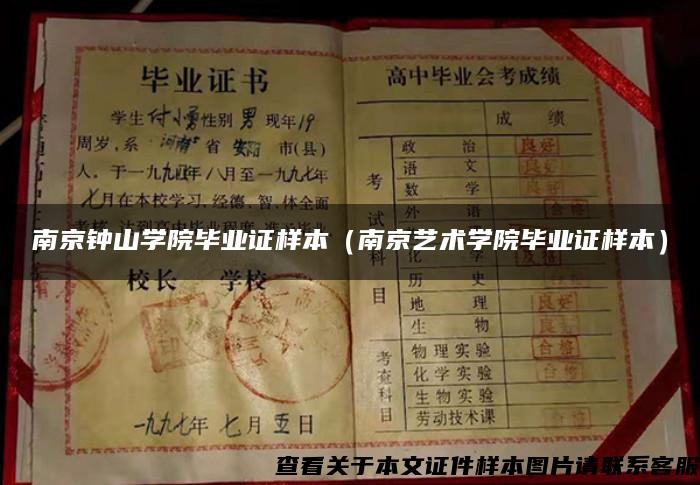 毕业证书
学生付小勇性别男现年19
周岁,系河南省安阳市(县)
人。于一九九四年八月至一九九七年
七月在本校学习,经德、智、体全面
南京钟山学院毕业证样本(南京艺术学院毕业证样本)
校长 学校
一九九七年七月五日
高中毕业会考成绩
成绩
考试科目
政治 良好
语文 良好
数学 良好
外语 合格
化学 良好
历史 良好
地理 良好
生物 良好
考查科目
物理实验 合格
化学实验 合格
生物实验
劳动技术课 合格
查看关于本文证件样本图片请联系客服